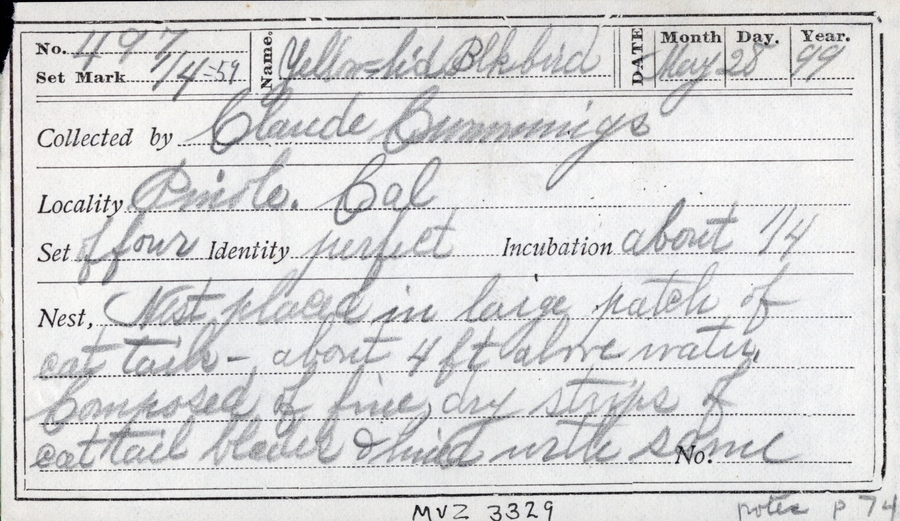 No. 497 Name. Yellow=h'd Blkbird DATE Month Day. Year.
Set Mark 1/4-59 May 28 99
Collected by Claude Cummings
Locality Pinole. Cal
Set of four Identity perfect Incubation about 1/4
Nest, Nest placed in large patch of
cat tails - about 4 ft above water.
Composed of fine, dry strips of
cat tail blades & lined with same
No.
MVZ 3329 notes p 74